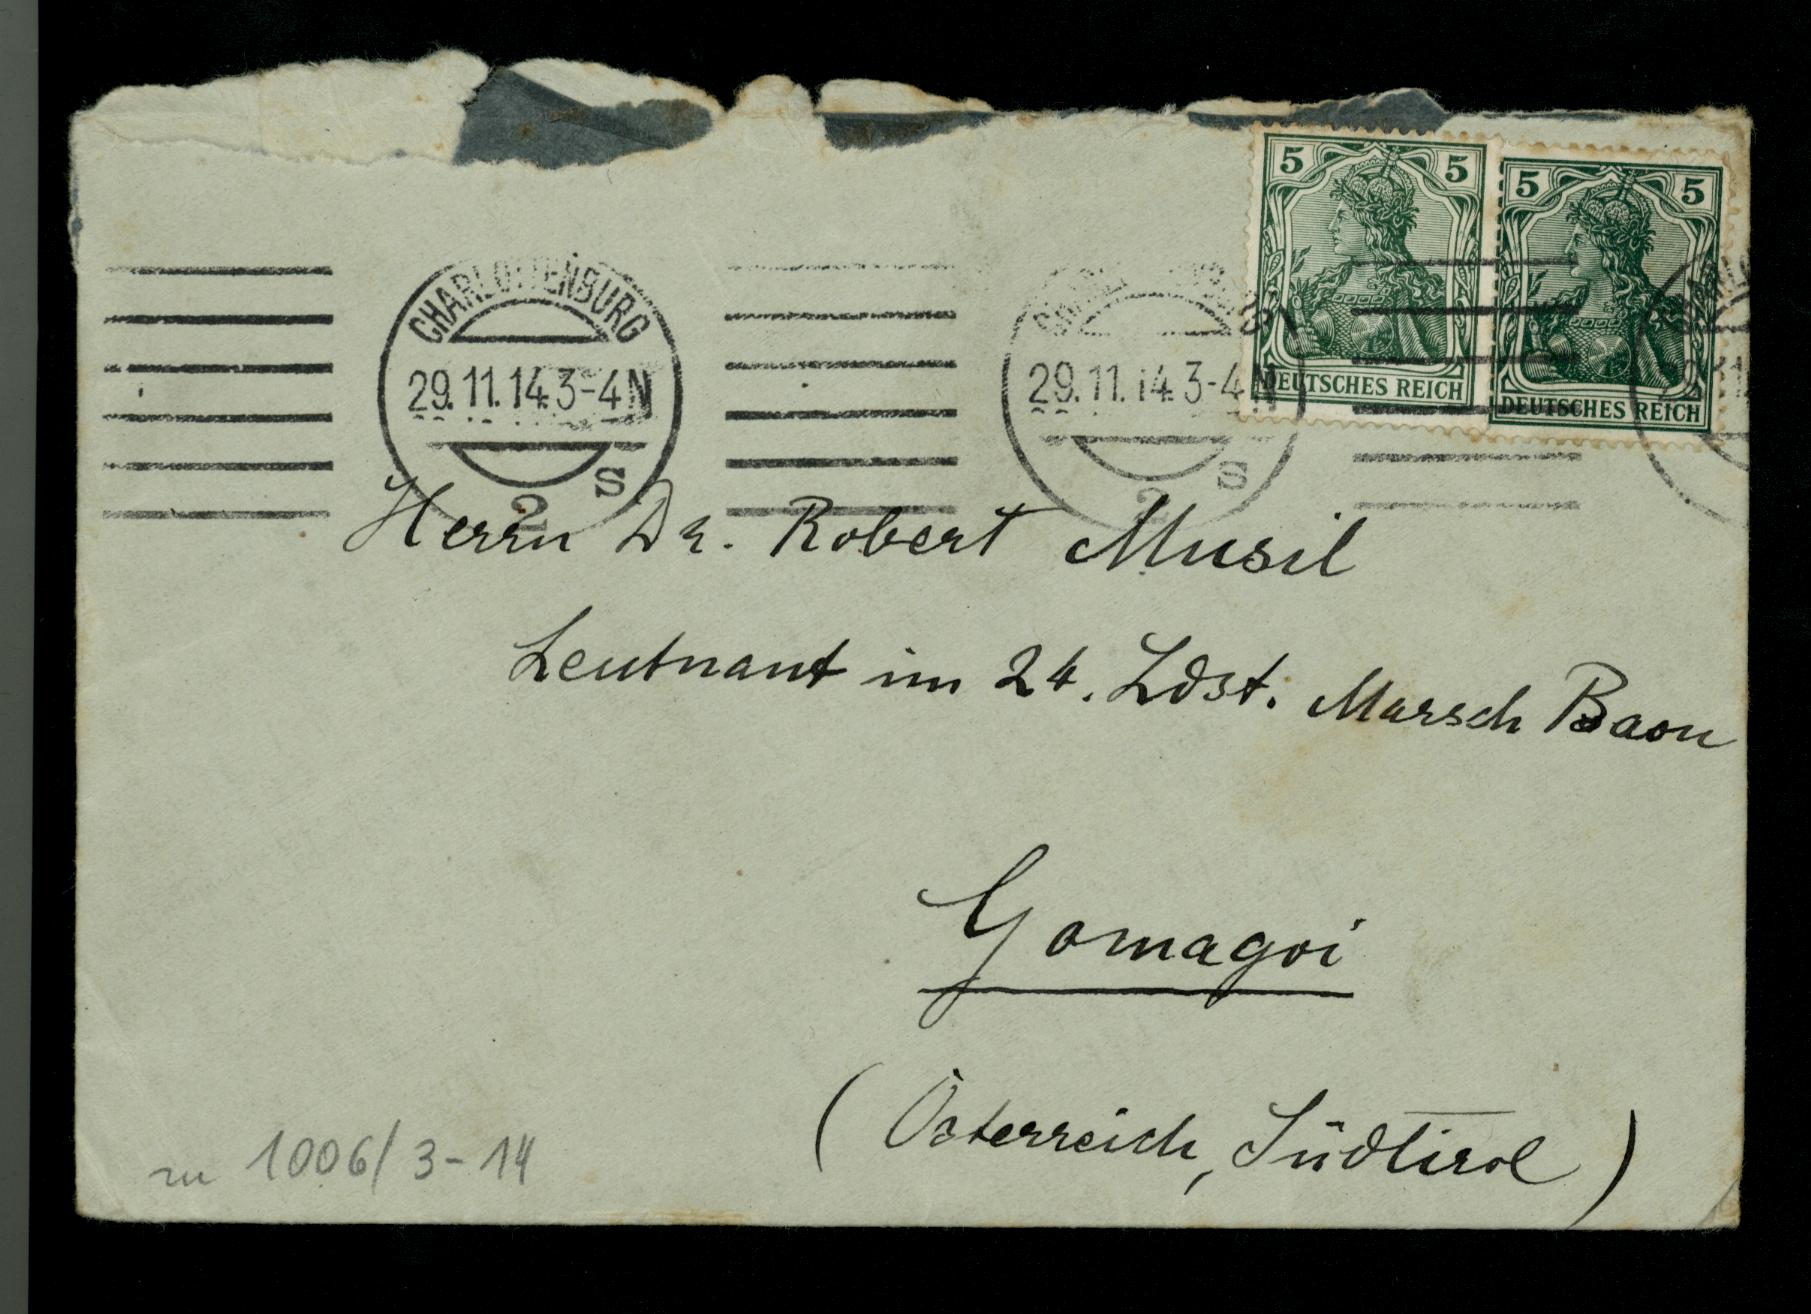 5 5 5 5
DEUTSCHES REICH DEUTSCHES REICH
CHARLOTTENBURG
29.11.14.3-4N 29.11.14 3-4N
S S
2 2
Herrn Dr. Robert Musil
Leutnant im 24. Ldst. Marsch Baon
Gomagoi
(Österreich, Südtirol)
zu 1006/3-14